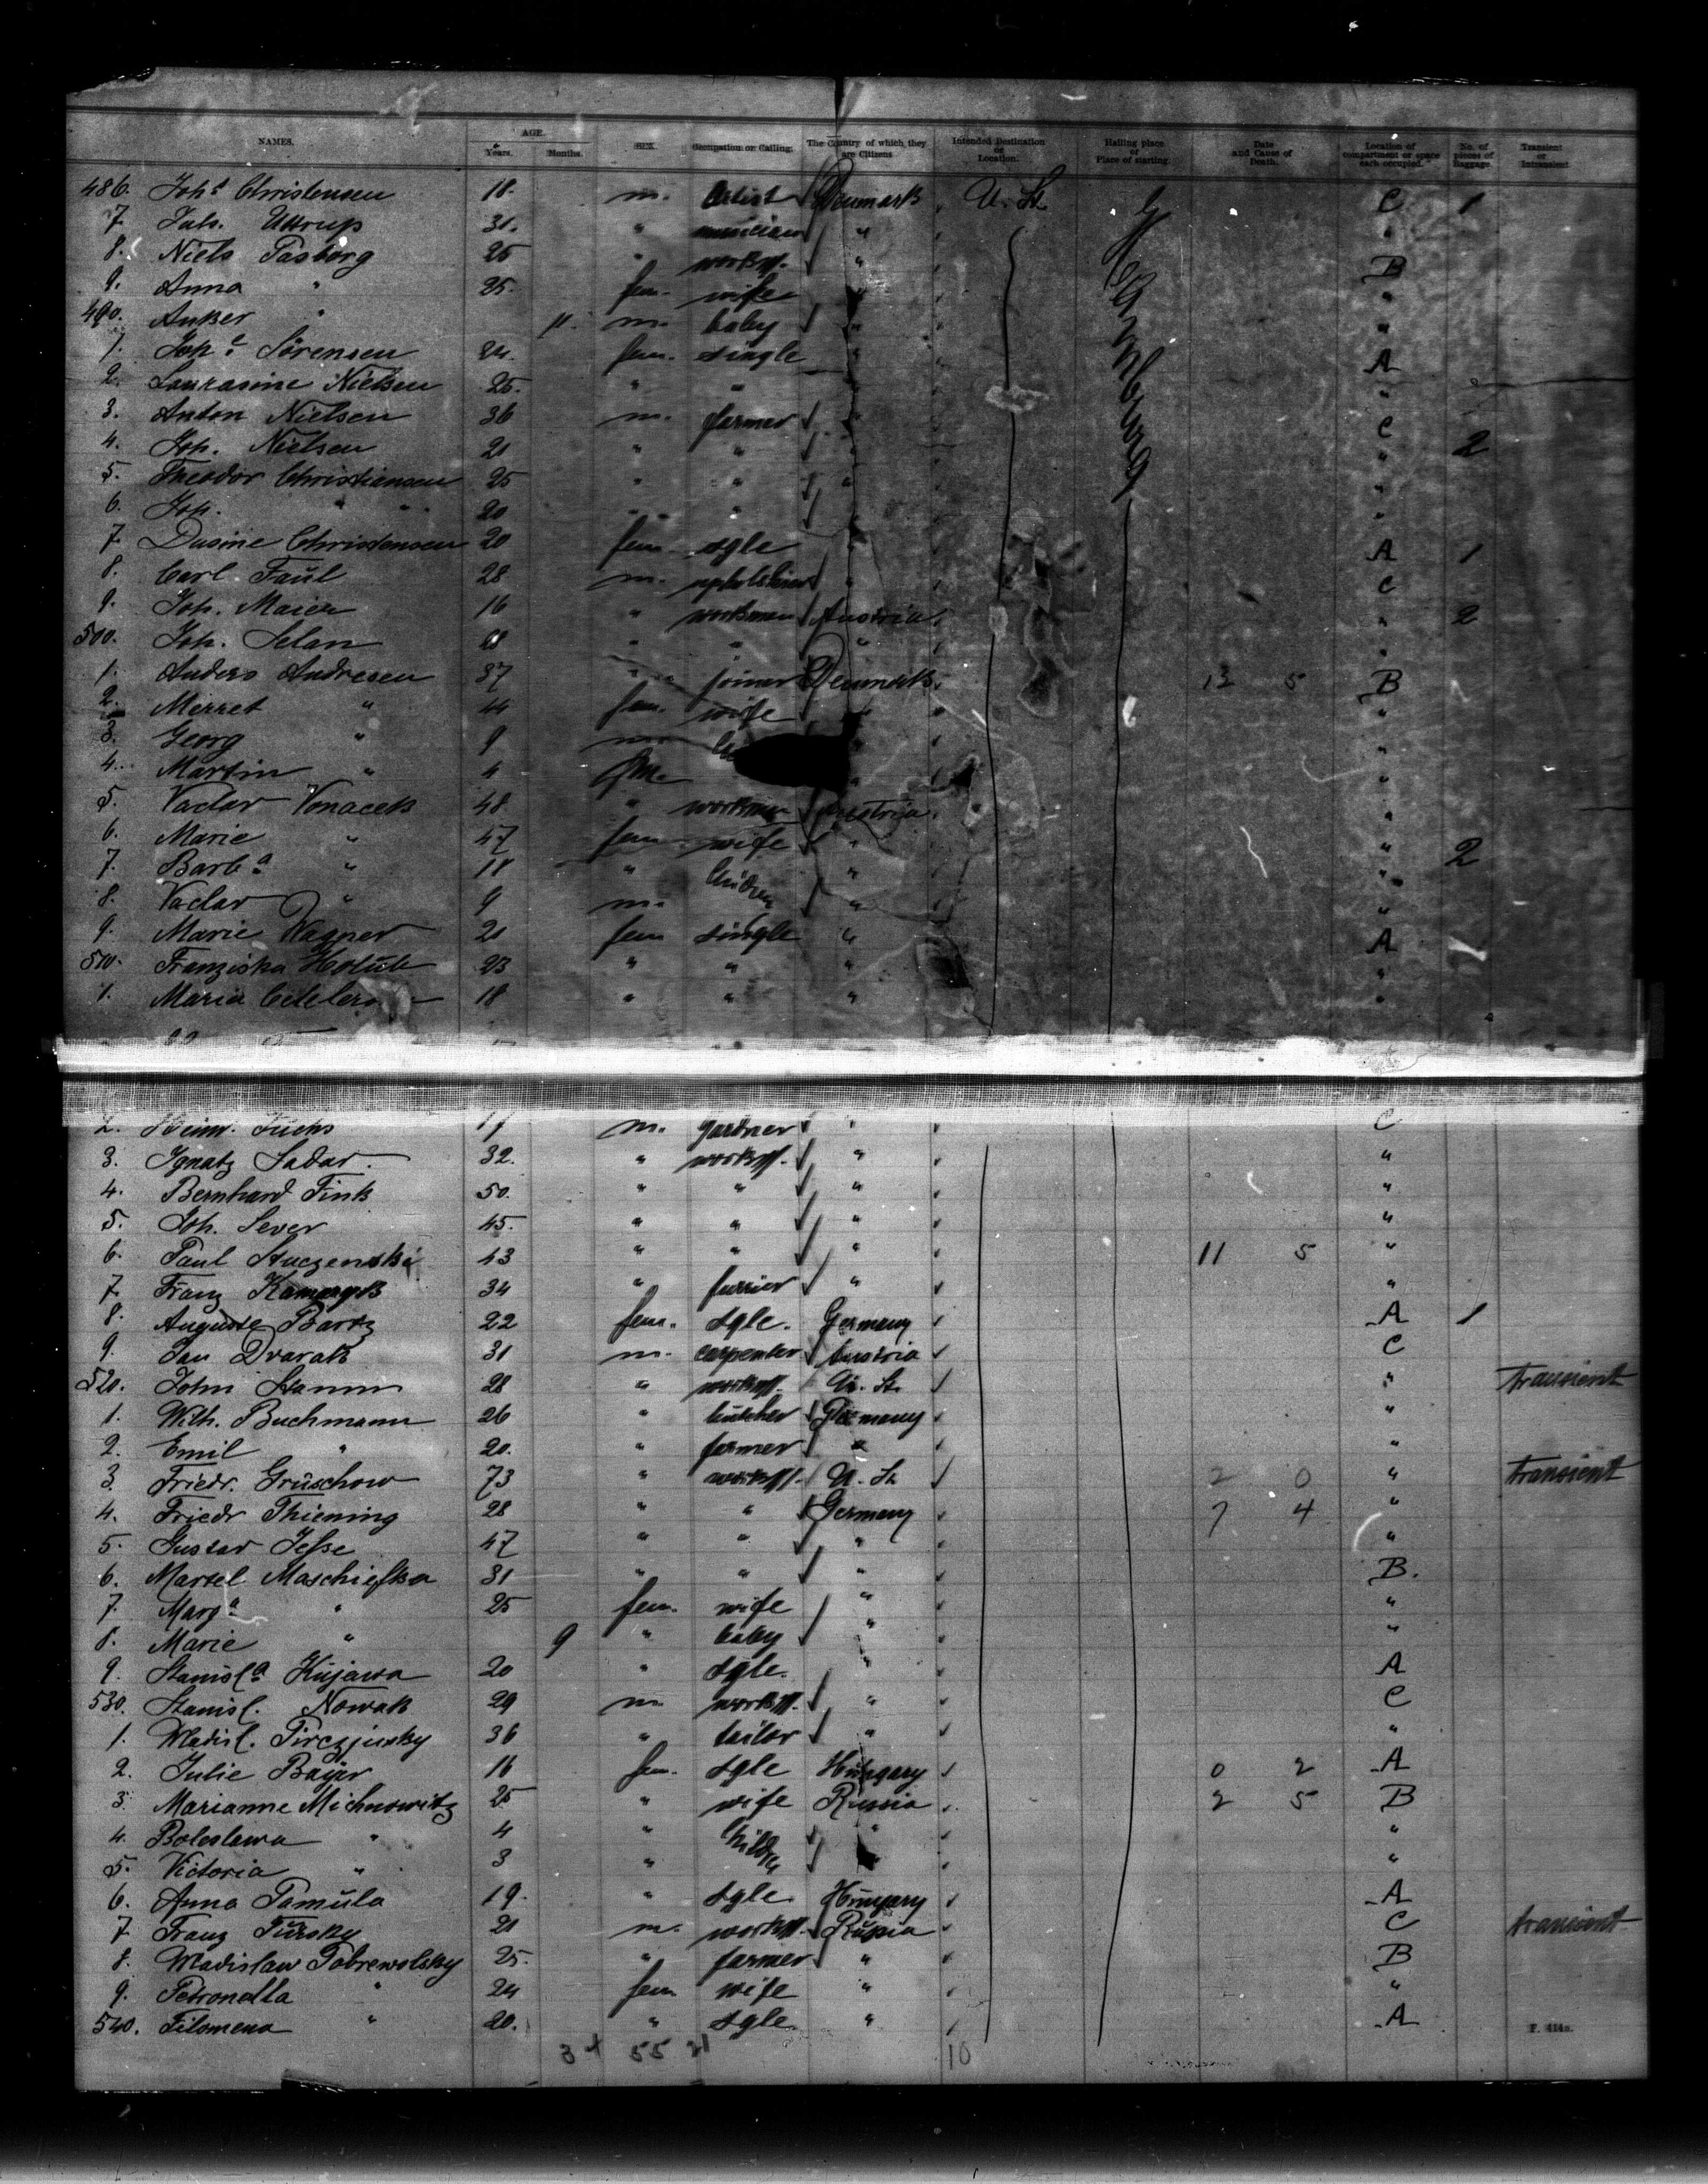 NAMES. AGE. Years. Months. SEX. Occupation or Calling. The Country of which they are Citizens Intended Destination or Location. Hailing place or Place of starting. Date and Cause of Death. Location of compartment or space each occupied. No. of pieces of Baggage. Transient or Intransient.
486. Joh.s Christensen 18. m. artist Denmark U. St. Hamburg C 1
7. Joh. Uttrup 31. " musician " "
8. Niels Pasborg 25 " workm. " B
9. Anna " 25. fem. wife " "
490. Anker " 11. m. baby " "
1. Joh.e Sörensen 24. fem. single " A
2. Laurasine Nielsen 25. " " " "
3. Anton Nielsen 36 m. farmer " C
4. Joh. Nielsen 21 " " " " 2
5. Theodor Christiansen 25 " " " "
6. Joh. " 20 " " " "
7. Dusine Christensen 20 fem. sgle " A 1
8. Carl Faül 28 m. " C
9. Joh. Maier 16 " workman Austria " 2
500. Joh. Selan " " " "
1. Anders Andresen 37 " joiner Denmark 12 5 B
2. Merret " 44 fem. wife " "
3. Georg " 9 m. " "
4. Martin " 4 " "
5. Vaclav Vonacek 48 " workman Austria "
6. Marie " 47 fem wife " " 2
7. Barb.a " 11 " children " "
8. Vaclav " 9 m. " "
9. Marie Wagner 21 fem single " A
510. Franziska Holub 23 " " " "
1. Maria 18 " " " "
2. Heinr. Fuchs 17 m. gardner " C
3. Ignatz Sadar. 32. " workm. " "
4. Bernhard Fink 50. " " " "
5. Joh. Sever 45. " " " "
6. Paul Stuczenski 43 " " " 11 5 "
7. Franz 34 " furrier " "
8. Auguste Bartz 22 fem. sgle. Germany A 1
9. Jan Dvarak 31 m. carpenter Austria C
520. John Stamm 28 " workm. U. St. " transient
1. Wilh. Buchmann 26 " butcher Germany "
2. Emil " 20. " farmer " "
3. Friedr. Grüschow 73 " workm. U. St. 2 0 " transient
4. Friedr Thiening 28 " " Germany 7 4 "
5. Gustav Jesse 47 " " " "
6. Martel Maschiefka 31 " " " B.
7. Marg.a " 25 fem. wife " "
8. Marie " 9 " baby " "
9. Stanisl.a Kujawa 20 " sgle. " A
530. Stanisl. Nowak 29 m workm. " C
1. Wladisl. Pirczjinsky 36 " tailor " "
2. Julie Bayer 16 fem. sgle Hungary 0 2 A
3. Marianne Michnowitz 25 " wife Russia 2 5 B
4. Boleslawa " 4 " children " "
5. Victoria " 3 " " "
6. Anna Pamula 19. " sgle. Hungary A
7. Franz Tursky 21 m. workm. Russia C transient
8. Wladislaw Dobrewolsky 25. " farmer " B
9. Petronella " 24 fem wife " "
540. Filomena " 20. " sgle. " A
F. 414a.
34 55 21 10